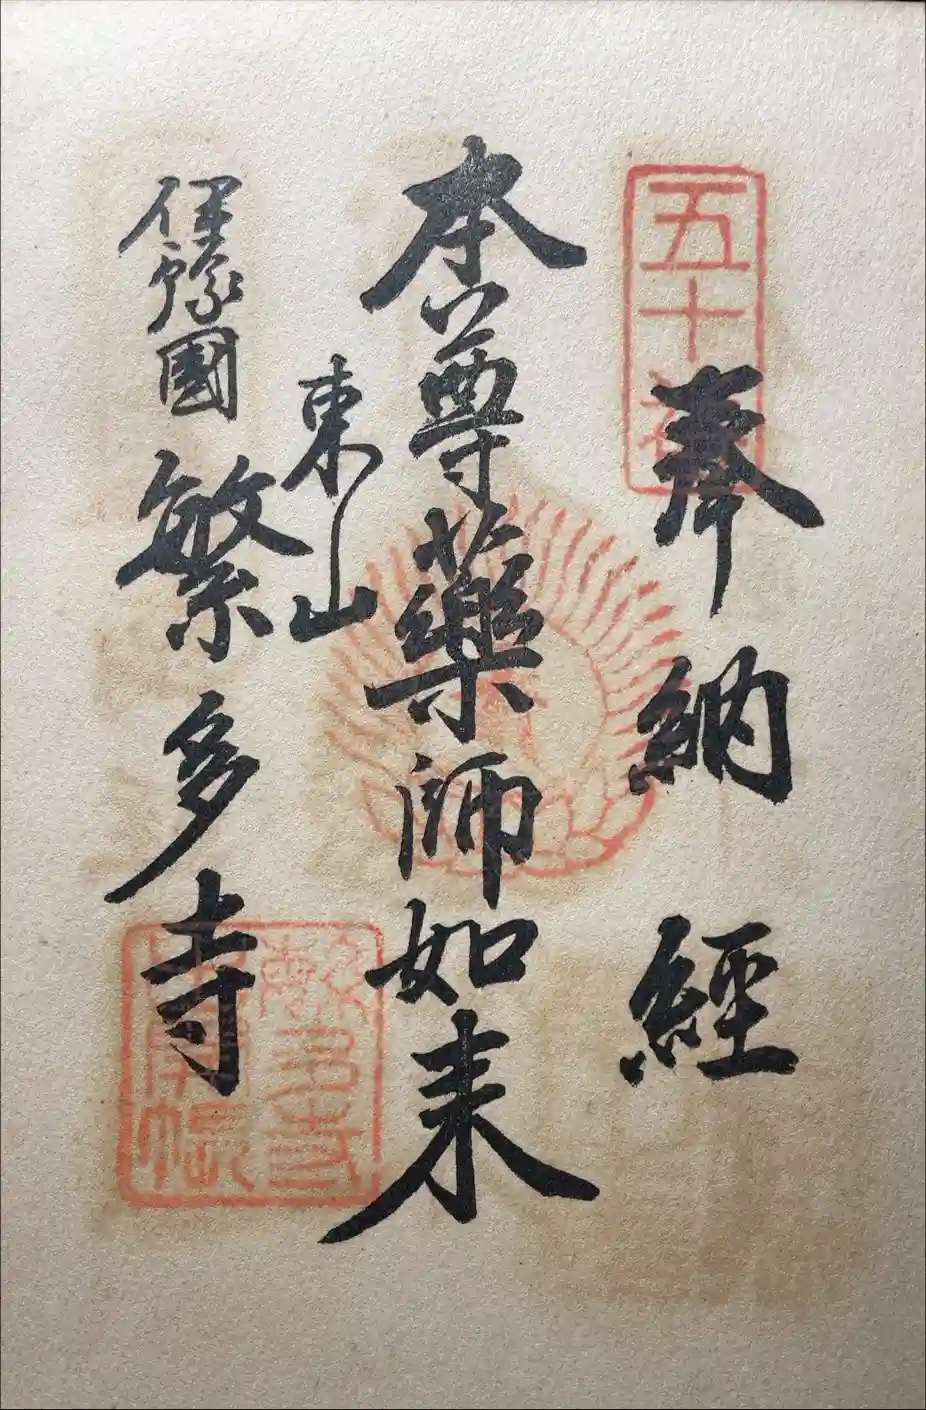 五十
奉納経
本尊薬師如来
東山
伊豫國
繁多寺
繁多寺